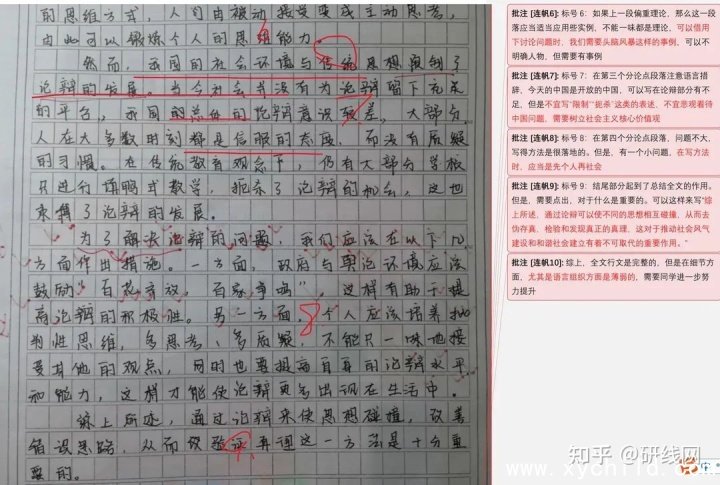 的思维方式，人们由被动接受变成主动思考，
由此可以锻炼个人的思维能力。
然而，我国的社会环境与传统思想限制了
论辩的发展。当今社会并没有为论辩留下充足
的平台，我国的总体的论辩意识较差，大部分
人在大多数时刻都是信服的态度，而没有质疑
的习惯。在传统教育观念下，仍有大部分学校
只进行填鸭式教学，扼杀了论辩的机会，这也
束缚了论辩的发展。
为了解决论辩的问题，我们应该在以下几
方面作出措施。一方面，政府与舆论环境应该
鼓励“百花齐放，百家争鸣”，这样有助于提
高论辩的积极性。另一方面，个人应该培养批
判性思维，多思考、多质疑，不能只一味地接
受其他的观点，同时也要提高自身的论辩水平
和能力，这样才能使论辩更多出现在生活中。
综上所述，通过论辩来使思想碰撞，改善
错误思路，从而验证真理这一方法是十分重
要的。
6
7
8
批注 [连帆6]：标号 6：如果上一段偏重理论，那么这一段
落应当适当应用些实例，不能一味都是理论，可以借用
下讨论问题时，我们需要头脑风暴这样的事例，可以不
明确人物，但需要有事例
批注 [连帆7]：标号 7：在第三个分论点段落注意语言措
辞，今天的中国是开放的中国，可以写在论辩部分有不
足，但是不宜写“限制”“扼杀”这类的表述，不宜悲观看待
中国问题，需要树立社会主义核心价值观
批注 [连帆8]：标号 8：在第四个分论点段落，问题不大，
写得方法是很落地的。但是，有一个小问题，在写方法
时，应当是先个人再社会
批注 [连帆9]：标号 9：结尾部分起到了总结全文的作用。
但是，需要点出，对于什么是重要的。可以这样来写“综
上所述，通过论辩可以使不同的思想相互碰撞，从而去
伪存真，检验和发现真正的真理，这对于推动社会风气
建设和和谐社会建立有着不可取代的重要作用。”
批注 [连帆10]：综上，全文行文是完整的，但是在细节方
面，尤其是语言组织方面是薄弱的，需要同学进一步努
力提升
中
知乎 @研线网
www.xychild.com